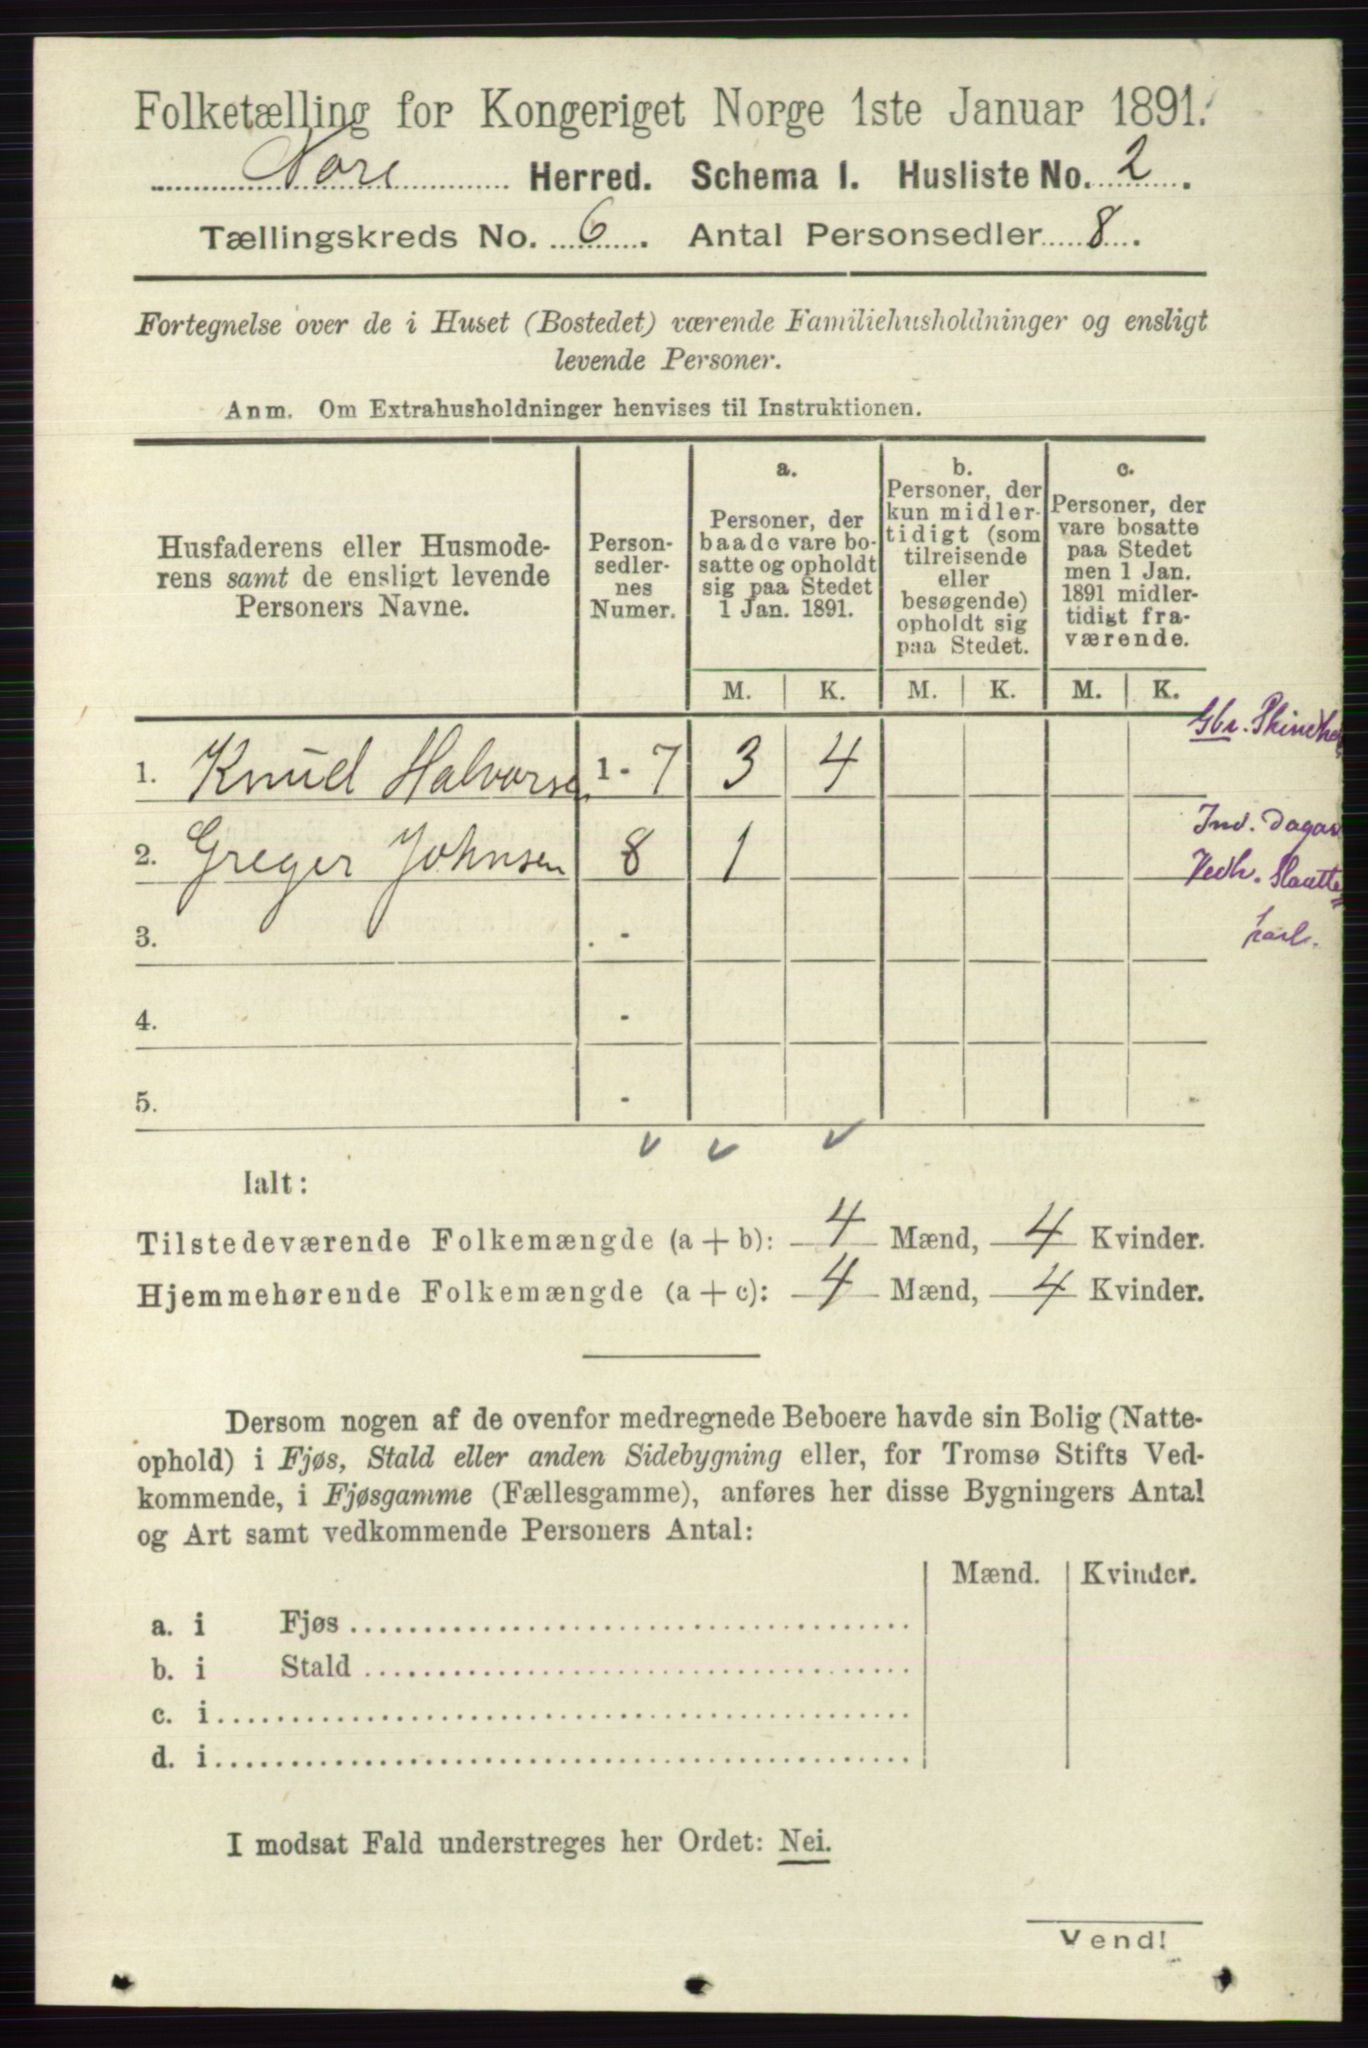 Folketælling for Kongeriget Norge 1ste Januar 1891.
Nore Herred. Schema I. Husliste No. 2.
Tællingskreds No. 6. Antal Personsedler 8.
Fortegnelse over de i Huset (Bostedet) værende Familiehusholdninger og ensligt
levende Personer.
Anm. Om Extrahusholdninger henvises til Instruktionen.
Husfaderens eller Husmode-
rens samt de ensligt levende
Personers Navne.
Person-
sedler-
nes
Numer.
a.
Personer, der
baade vare bo-
satte og opholdt
sig paa Stedet
1 Jan. 1891.
b.
Personer, der
kun midler-
tidigt (som
tilreisende
eller
besøgende)
opholdt sig
paa Stedet.
c.
Personer, der
vare bosatte
paa Stedet
men 1 Jan.
1891 midler-
tidigt fra-
værende.
M. K. M. K. M. K.
1. Knud Halvorsen 1 - 7 3 4
Gbr.
2. Greger Johnsen 8 1
Ind.
3. -
4. -
5. -
Ialt:
Tilstedeværende Folkemængde (a + b): 4 Mænd, 4 Kvinder.
Hjemmehørende Folkemængde (a + c): 4 Mænd, 4 Kvinder.
Dersom nogen af de ovenfor medregnede Beboere havde sin Bolig (Natte-
ophold) i Fjøs, Stald eller anden Sidebygning eller, for Tromsø Stifts Ved-
kommende, i Fjøsgamme (Fællesgamme), anføres her disse Bygningers Antal
og Art samt vedkommende Personers Antal:
Mænd. Kvinder.
a. i Fjøs
b. i Stald
c. i
d. i
I modsat Fald understreges her Ordet: Nei.
Vend!